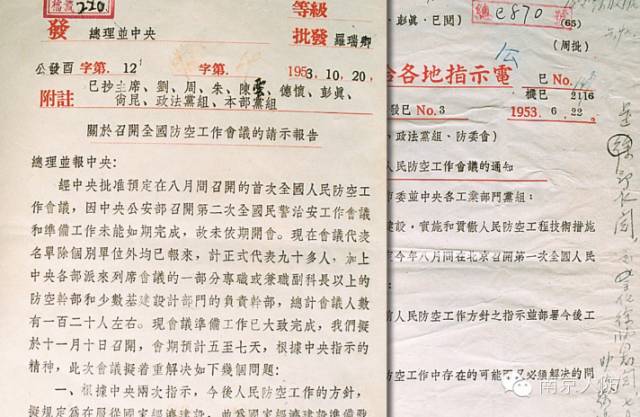 檔案 220
等級
發 總理並中央
批發 羅瑞卿
公發酉 字第.12 字第. 1953.10.20,
已抄主席、劉、周、朱、陳雲、德懷、彭眞、
附註 尙昆、政法黨組、本部黨組
關於召開全國防空工作會議的請示報告
總理並報中央:
經中央批准預定在八月間召開的首次全國人民防空工
作會議,因中央公安部召開第二次全國民警治安工作會議
和準備工作未能如期完成,故未依期開會。現在會議代表
名單除個別單位外均已報來,計正式代表九十多人,加上
中央各部派來列席會議的一部分專職或兼職副科長以上的
防空幹部和少數基建設計部門的負責幹部,總計會議人數
有一百二十人左右。現會議準備工作已大致完成,我們擬
於十一月十日召開,會期預計五至七天,根據中央指示的
精神,此次會議擬着重解決如下幾個問題:
一、根據中央兩次指示,今後人民防空工作的方針,
擬規定爲在服從國家經濟建設,並爲國家經濟建設準備戰
、彭眞、已閱) 總 870 (65)
(周批)
公
給各地指示電 已 No.
機已 2116
發已 No.3 1953.6.22.
、政法黨組、防委會)
人民防空工作會議的通知
市委並中央各工業部門黨組:
建設,實施和貫徹人民防空工程技術措施
定今年八月間在北京召開第一次全國人民
前人民防空工作方針之指示並部署今後工
防空工作中存在的可能而又必須解決的問
南京人防